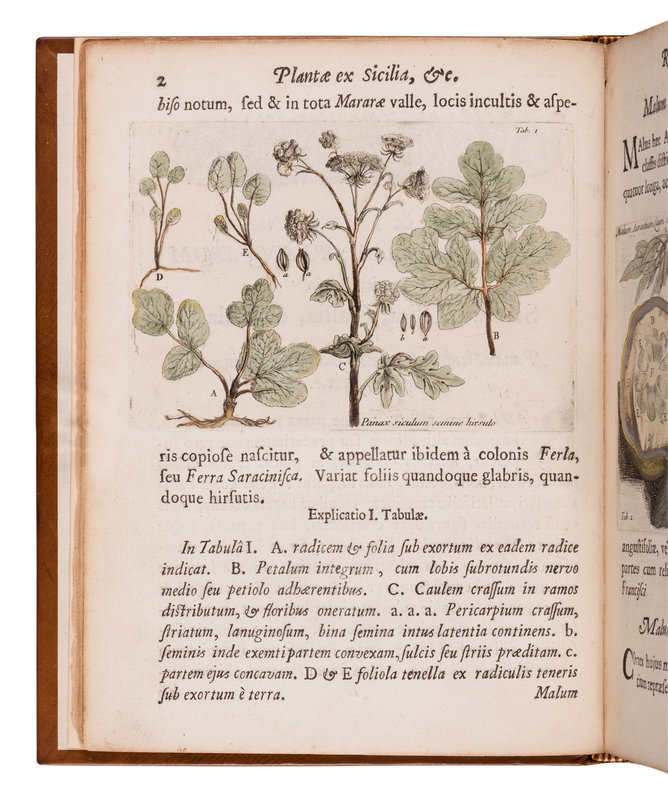 2 Plantæ ex Sicilia, &c.
biſo notum, ſed & in tota Mararæ valle, locis incultis & aſpe-
Tab. 1
D
E
a a
b b a
B
A
C
Panax siculum semine hirsuto
ris copioſe naſcitur, & appellatur ibidem à colonis Ferla,
ſeu Ferra Saraciniſca. Variat foliis quandoque glabris, quan-
doque hirſutis.
Explicatio I. Tabulæ.
In Tabulâ I. A. radicem & folia ſub exortum ex eadem radice
indicat. B. Petalum integrum, cum lobis ſubrotundis nervo
medio ſeu petiolo adhærentibus. C. Caulem craſſum in ramos
diſtributum, & floribus oneratum. a. a. a. Pericarpium craſſum,
ſtriatum, lanuginoſum, bina ſemina intus latentia continens. b.
ſeminis inde exemti partem convexam, ſulcis ſeu ſtriis præditam. c.
partem ejus concavam. D & E foliola tenella ex radiculis teneris
ſub exortum è terra. Malum
R
Malum
MAlus hæc A
claſſis diſti
quatuor longa, ac
Malum Aurantium
Tab. 2
anguſtifoliæ, ve
partes cum reli
Franciſci
Malu
COrtex hujus m
cum repræſe